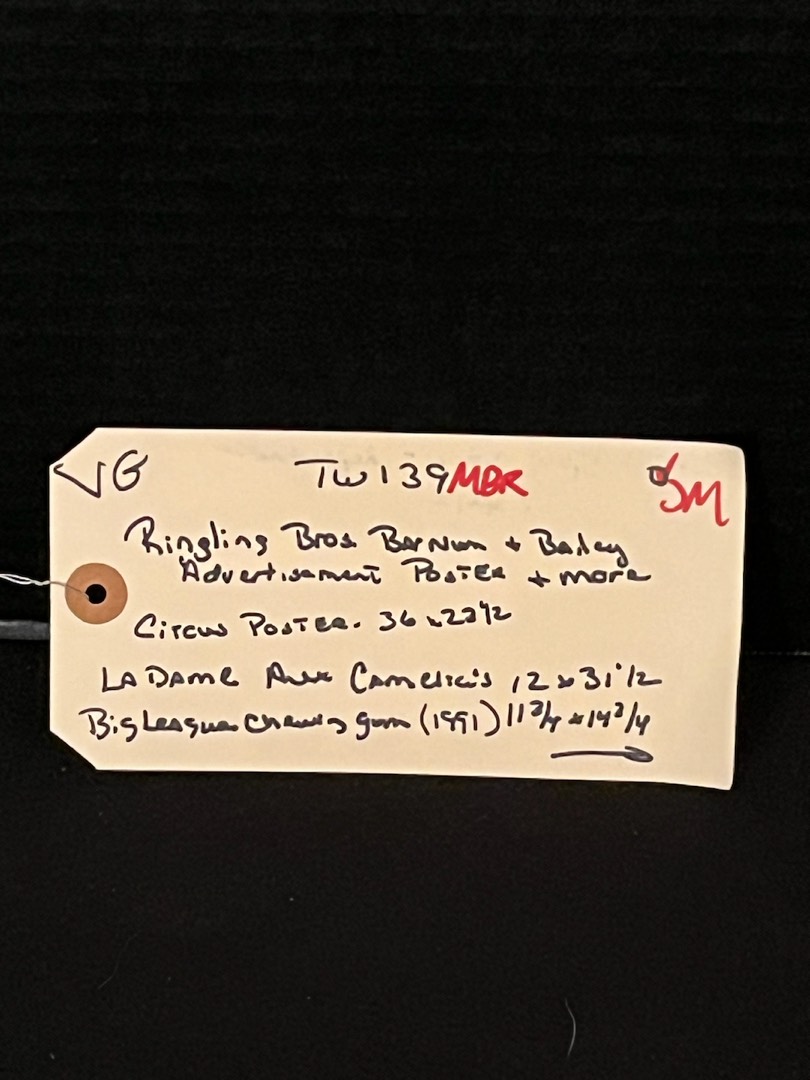 VG TW139 MBR SM
Ringling Bros Barnum + Bailey
Advertisement Poster + more
Circus Poster. 36 x 22 1/2
La Dame Aux Camelias 12 x 31 1/2
Big League Chewing gum (1991) 11 3/4 x 14 3/4